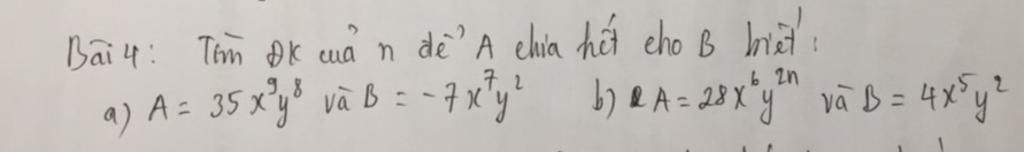 Bài 4: Tìm ĐK cuả n để A chia hết cho B biết:
a) A = 35x⁹y⁸ và B = -7x⁷y² b) A = 28x⁶y²ⁿ và B = 4x⁵y²